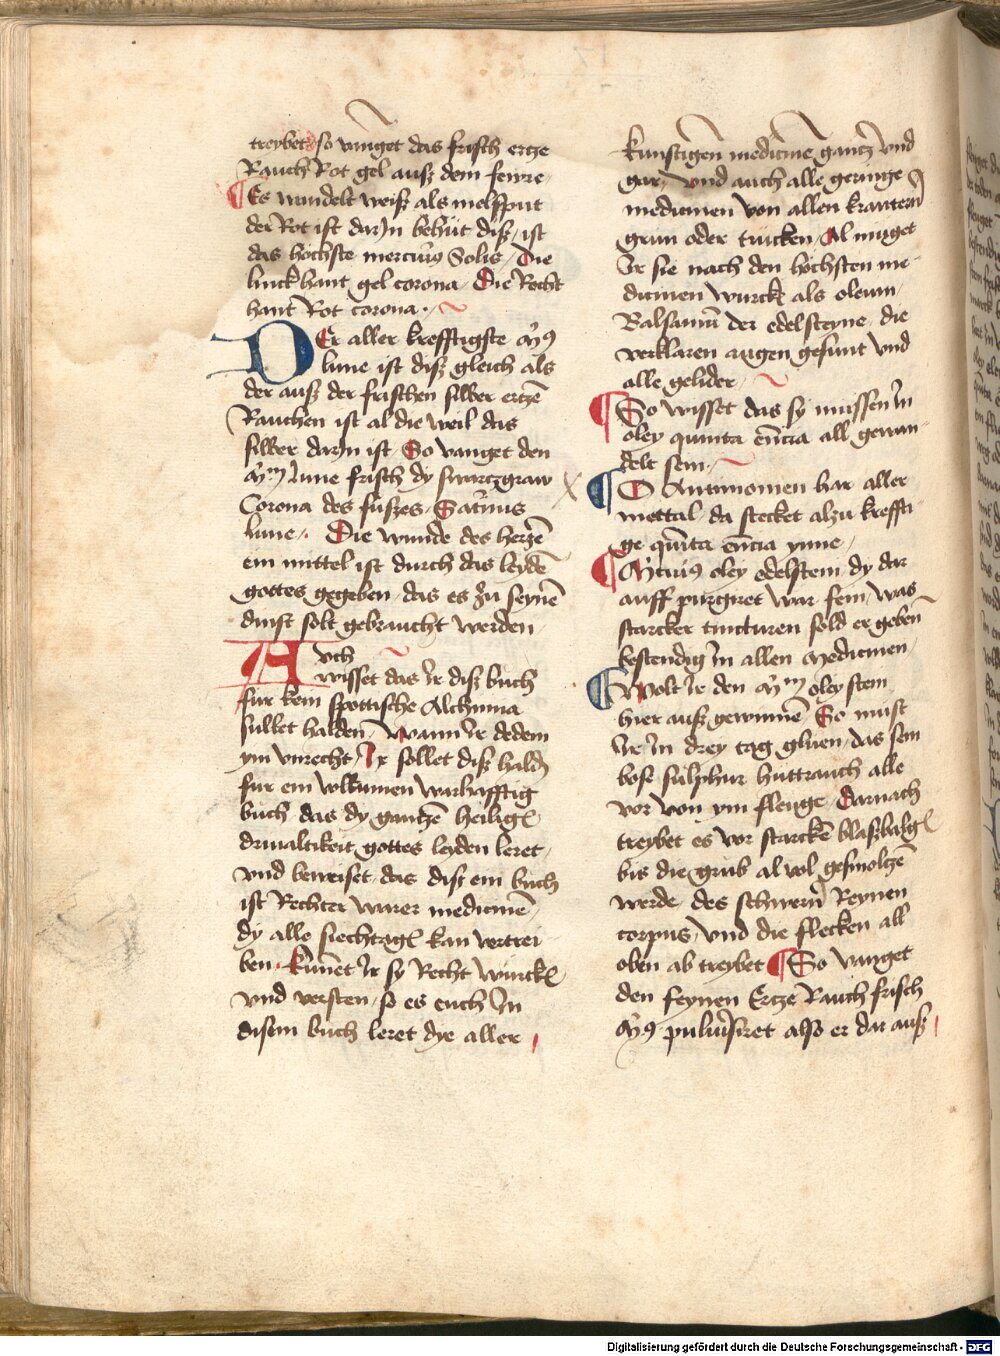 treybet so vanget das frisch ertze
Rauch Rot gel auß dem fewre
Es wandelt weiß als melsput
der Rot ist darJn behut diß ist
das hochste mercurius Solis Die
linck hant gel corona Die Recht
hant Rot corona
DEr aller krefftigste
lune ist diß gleich als
der auß der frischen silber ertzē
Rauchen ist al die weil das
silber daryn ist So vanget den
lune frisch dy swartzgraw
Corona des fuszes Satur9us
lune Die wunde des hertzē
ein mittel ist durch das leydē
gottes gegeben das es zu seynē
dinst solt gebraucht werden
Auch
wisset das Jr diß buch
fur kein spottische Alchimia
sullet halden Wann Jr dedem
ym vnrecht Jr sollet diß haldn
fur ein volkumen warhafftig
buch das dy gantzē heilig
driualtikeit gottes leyden leret
vnd beweiset das dist ein buch
ist Rechter warer medicinē
dy alle siechtag kan vertrei
ben kunnet Jr sy Recht wurck
vnd versten so es euch Jn
disem buch leret dye aller
kunstigen medicine gantz Vnd
gar Vnd auch alle geringe
medicinen von allen krautern
grun oder trucken Al muget
Jr sie nach den hochsten me
dicinen wurck als oleum
Balsamū der edelsteyne die
verklaren augen gesunt Vnd
alle gelider
So wisset das sy mussen Jn
oley quinta ēncia all gewan
delt sein
O Antimonien bar aller
mettal da stecket alzu kreffti
ge quīta ēncia ynne
oley edelstein dy dar
auff purgiret war sein was
starcker tincturen sold er geben
bestendig Jn allen Medicinen
Wolt Jr den oley stein
hier auß gewinnē So must
Jr Jn drey tag gluen das sein
bose sulphur huttrauch alle
vor von ym flenge Darnach
treybet es vor starckē blaßbalg
bis die grub al vol gesmoltzē
werde des schwern Reynen
corpus vnd die flecken all
oben ab treybet So vanget
den feynen Ertze Rauch frisch
puluisiret also er dar auß
Digitalisierung gefördert durch die Deutsche Forschungsgemeinschaft - DFG